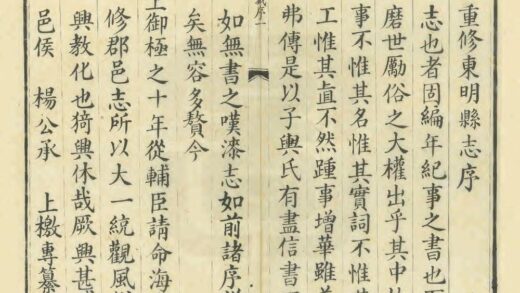 重修東明縣志序
志也者固編年紀事之書也
磨世勵俗之大權出乎其中
事不惟其名惟其實詞不惟其
工惟其直不然踵事增華雖
弗傳是以子輿氏有盡信書
序一
如無書之嘆漆志如前諸序
矣無容多贅今
上御極之十年從輔臣請命海
修郡邑志所以大一統觀風
興教化也猗與休哉厥興甚
邑侯楊公承上檄專纂